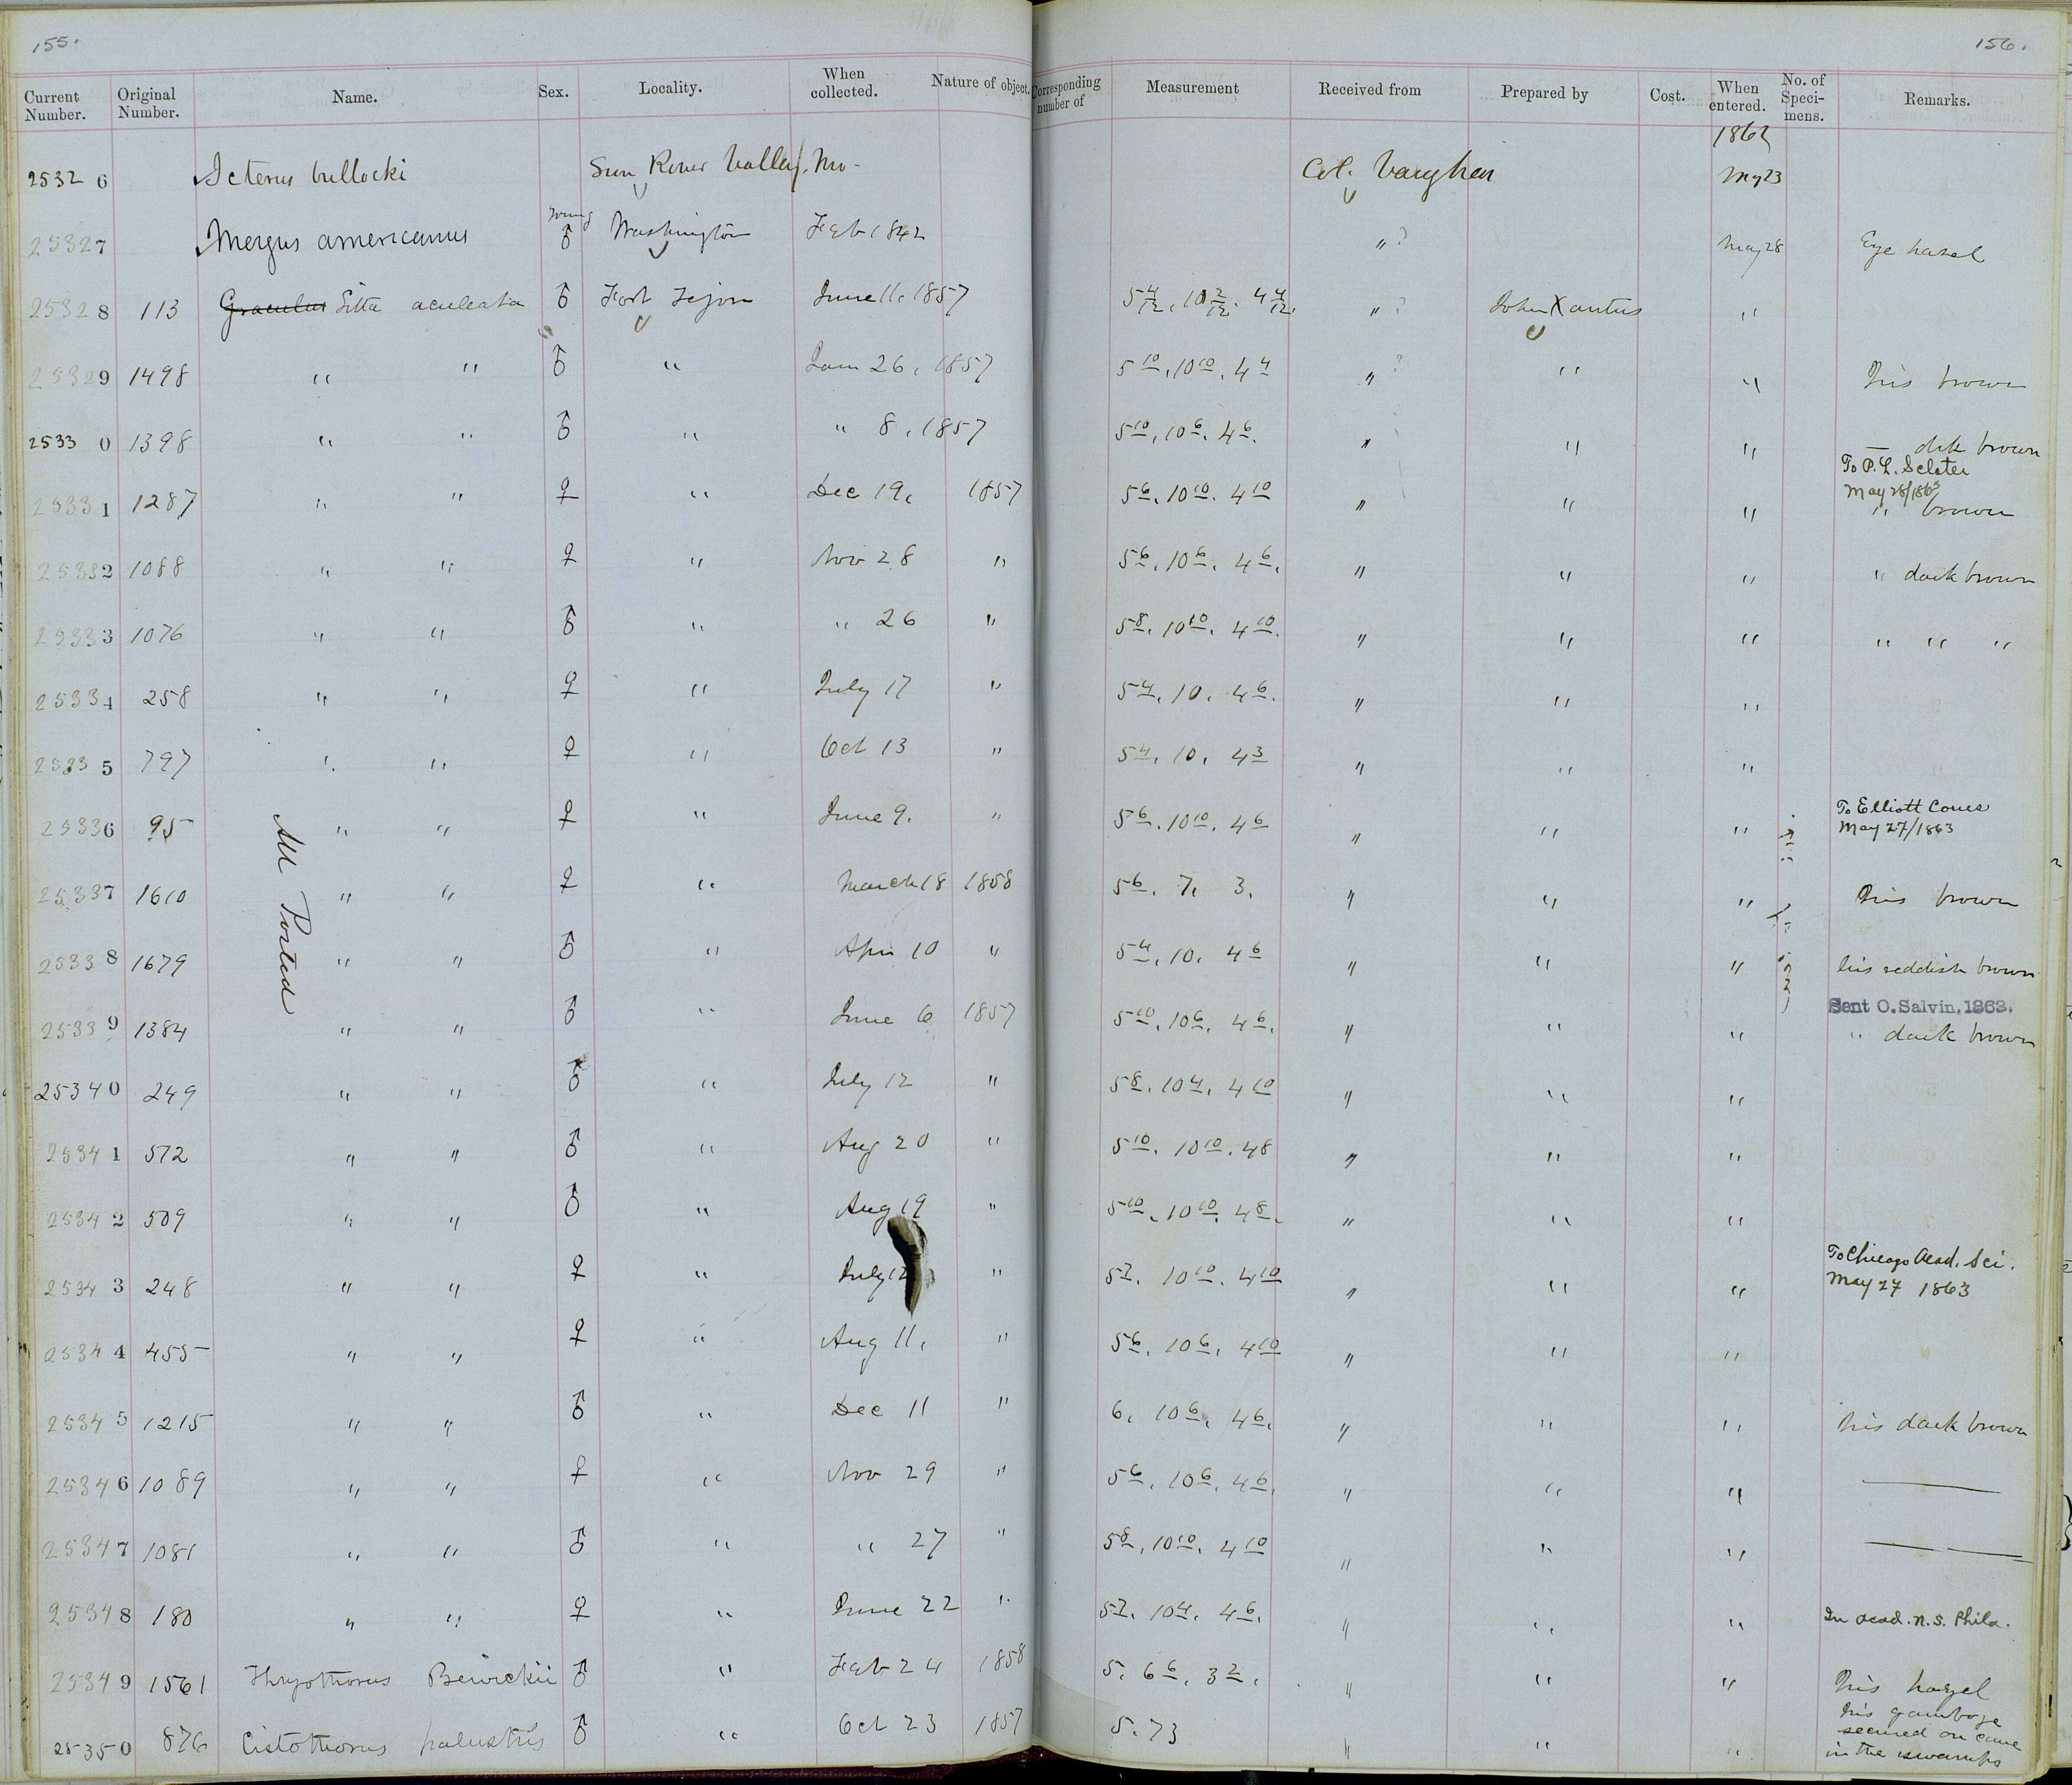 155.
156.
Current Number. Original Number. Name. Sex. Locality. When collected. Nature of object. Corresponding number of Measurement Received from Prepared by Cost. When entered. No. of Speci-mens. Remarks.
1862
25326 Icterus bullocki Sun River Valley, Col. Vaughan My 23
25327 Mergus americanus young ♂ Washington Feb 1842 " ? May 28 Eye hazel
25328 113 Graculus Sitta aculeata ♂ Fort Tejon June 11, 1857 5 4/12, 10 2/12, 4 4/12. " ? John Xantus "
25329 1498 " " ♂ " Jan 26, 1857 5 10, 10 10, 4 4 " ? " " Iris brown
25330 1398 " " ♂ " " 8, 1857 5 10, 10 6, 4 6. " " " — dk brown
To P. L. Sclater
May 28/1863
25331 1287 " " ♀ " Dec 19, 1857 5 6, 10 10, 4 10 " " " " brown
25332 1088 " " ♀ " Nov 28 " 5 6, 10 6, 4 6, " " " " dark brown
25333 1076 " " ♂ " " 26 " 5 8, 10 10, 4 10. " " " " " "
25334 258 " " ♀ " July 17 " 5 4, 10, 4 6. " " "
25335 797 " " ♀ " Oct 13 " 5 4, 10, 4 3 " " "
25336 95 " " ♀ " June 9. " 5 6, 10 10, 4 6 " " " To Elliott Coues
May 27/1863
All Posted
25337 1610 " " ♀ " March 18 1858 5 6, 7, 3. " " " Iris brown
25338 1679 " " ♂ " Apr 10 " 5 4, 10, 4 6 " " " Iris reddish brown
Sent O. Salvin, 1863.
25339 1384 " " ♂ " June 6 1857 5 10, 10 6, 4 6, " " " " dark brown
25340 249 " " ♂ " July 12 " 5 8, 10 4, 4 10 " " "
25341 572 " " ♂ " Aug 20 " 5 10, 10 10, 4 8 " " "
25342 509 " " ♂ " Aug 19 " 5 10, 10 10, 4 8, " " "
25343 248 " " ♀ " July 12 " 5 2, 10 10, 4 10 " " " To Chicago Acad. Sci.
May 27 1863
25344 455 " " ♀ " Aug 11, " 5 6, 10 6, 4 10 " " "
25345 1215 " " ♂ " Dec 11 " 6, 10 6, 4 6, " " " Iris dark brown
25346 1089 " " ♀ " Nov 29 " 5 6, 10 6, 4 6, " " " —
25347 1081 " " ♂ " " 27 " 5 8, 10 10, 4 10 " " " — —
25348 180 " " ♀ " June 22 " 5 2, 10 4, 4 6, " " " In Acad. N. S. Phila.
25349 1561 Thryothorus Bewickii ♂ " Feb 24 1858 5, 6 6, 3 2, " " " Iris hazel
25350 876 Cistothorus palustris ♂ " Oct 23 1857 5. 73 " " " Iris gamboge
secured on cane
in the swamps